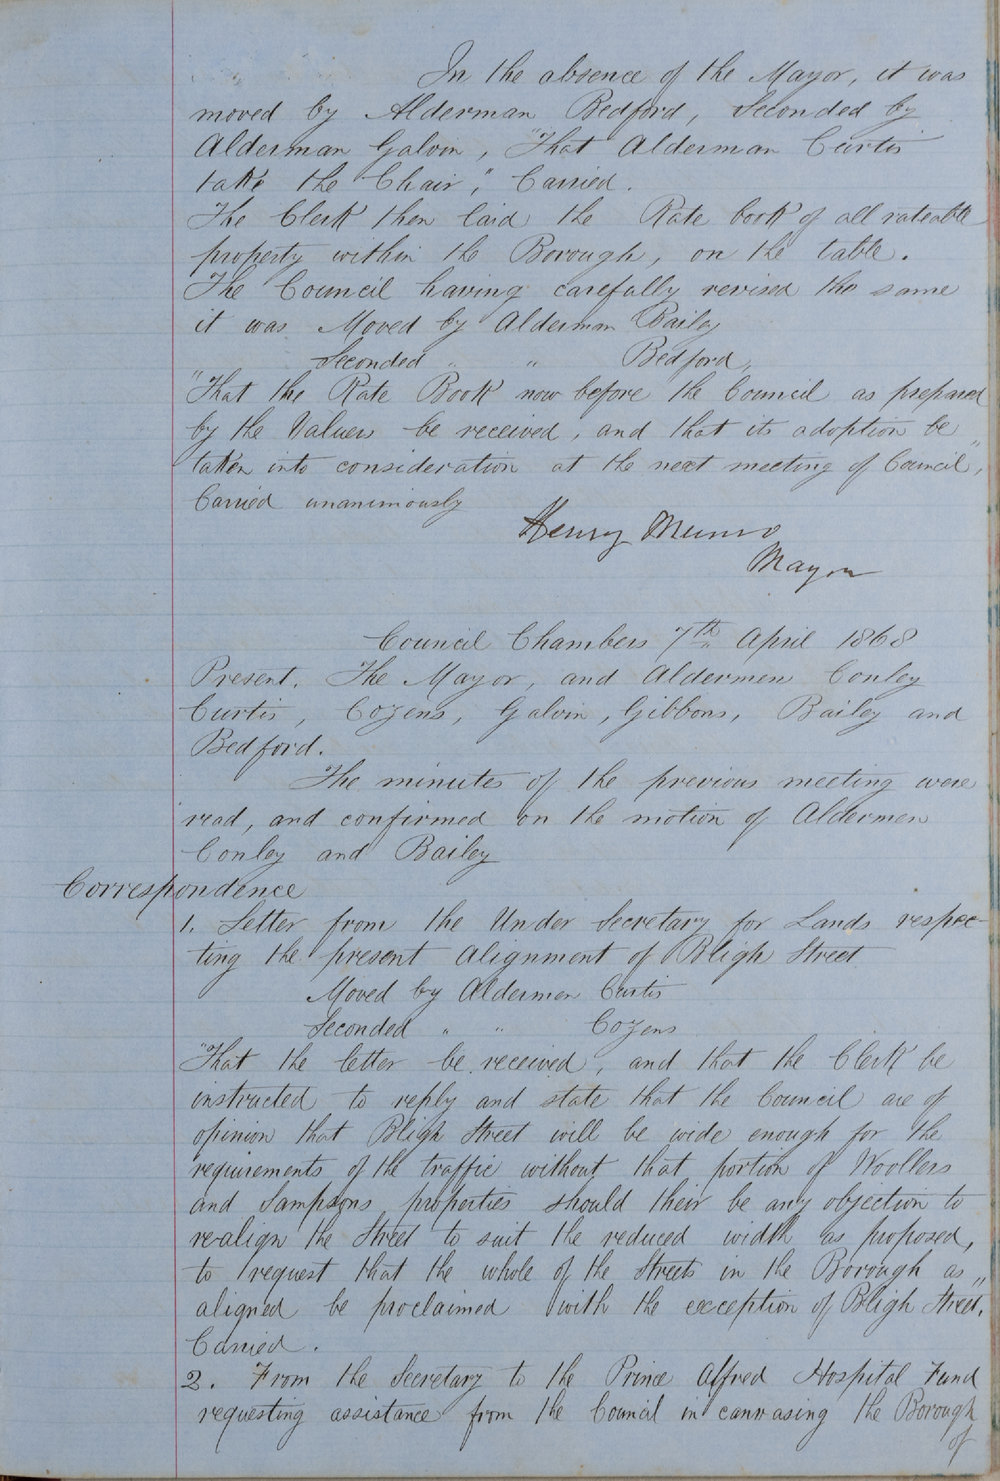 In the absence of the Mayor, it was
moved by Alderman Bedford, Seconded by
Alderman Galvin, "That Alderman Curtis
take the Chair," Carried.
The Clerk then laid the Rate book of all rateable
property within the Borough, on the table.
The Council having carefully revised the same
it was Moved by Alderman Bailey
Seconded " " Bedford,
"That the Rate Book now before the Council as prepared
by the Valuers be received, and that its adoption be
taken into consideration at the next meeting of Council",
Carried unanimously
Henry Munro
Mayor
Council Chambers 7th April 1868
Present. The Mayor, and Aldermen Conley
Curtis, Cozens, Galvin, Gibbons, Bailey and
Bedford.
The minutes of the previous meeting were
read, and confirmed on the motion of Aldermen
Conley and Bailey
Correspondence
1. Letter from the Under Secretary for Lands respec-
ting the present alignment of Bligh Street
Moved by Aldermen Curtis
Seconded " " Cozens
"That the letter be received, and that the Clerk be
instructed to reply and state that the Council are of
opinion that Bligh Street will be wide enough for the
requirements of the traffic without that portion of Woollers
and Sampsons properties should their be any objection to
realign the Street to suit the reduced width as proposed,
to request that the whole of the Streets in the Borough as
aligned be proclaimed with the exception of Bligh Street,"
Carried.
2. From the Secretary to the Prince Alfred Hospital Fund
requesting assistance from the Council in canvasing the Borough
of